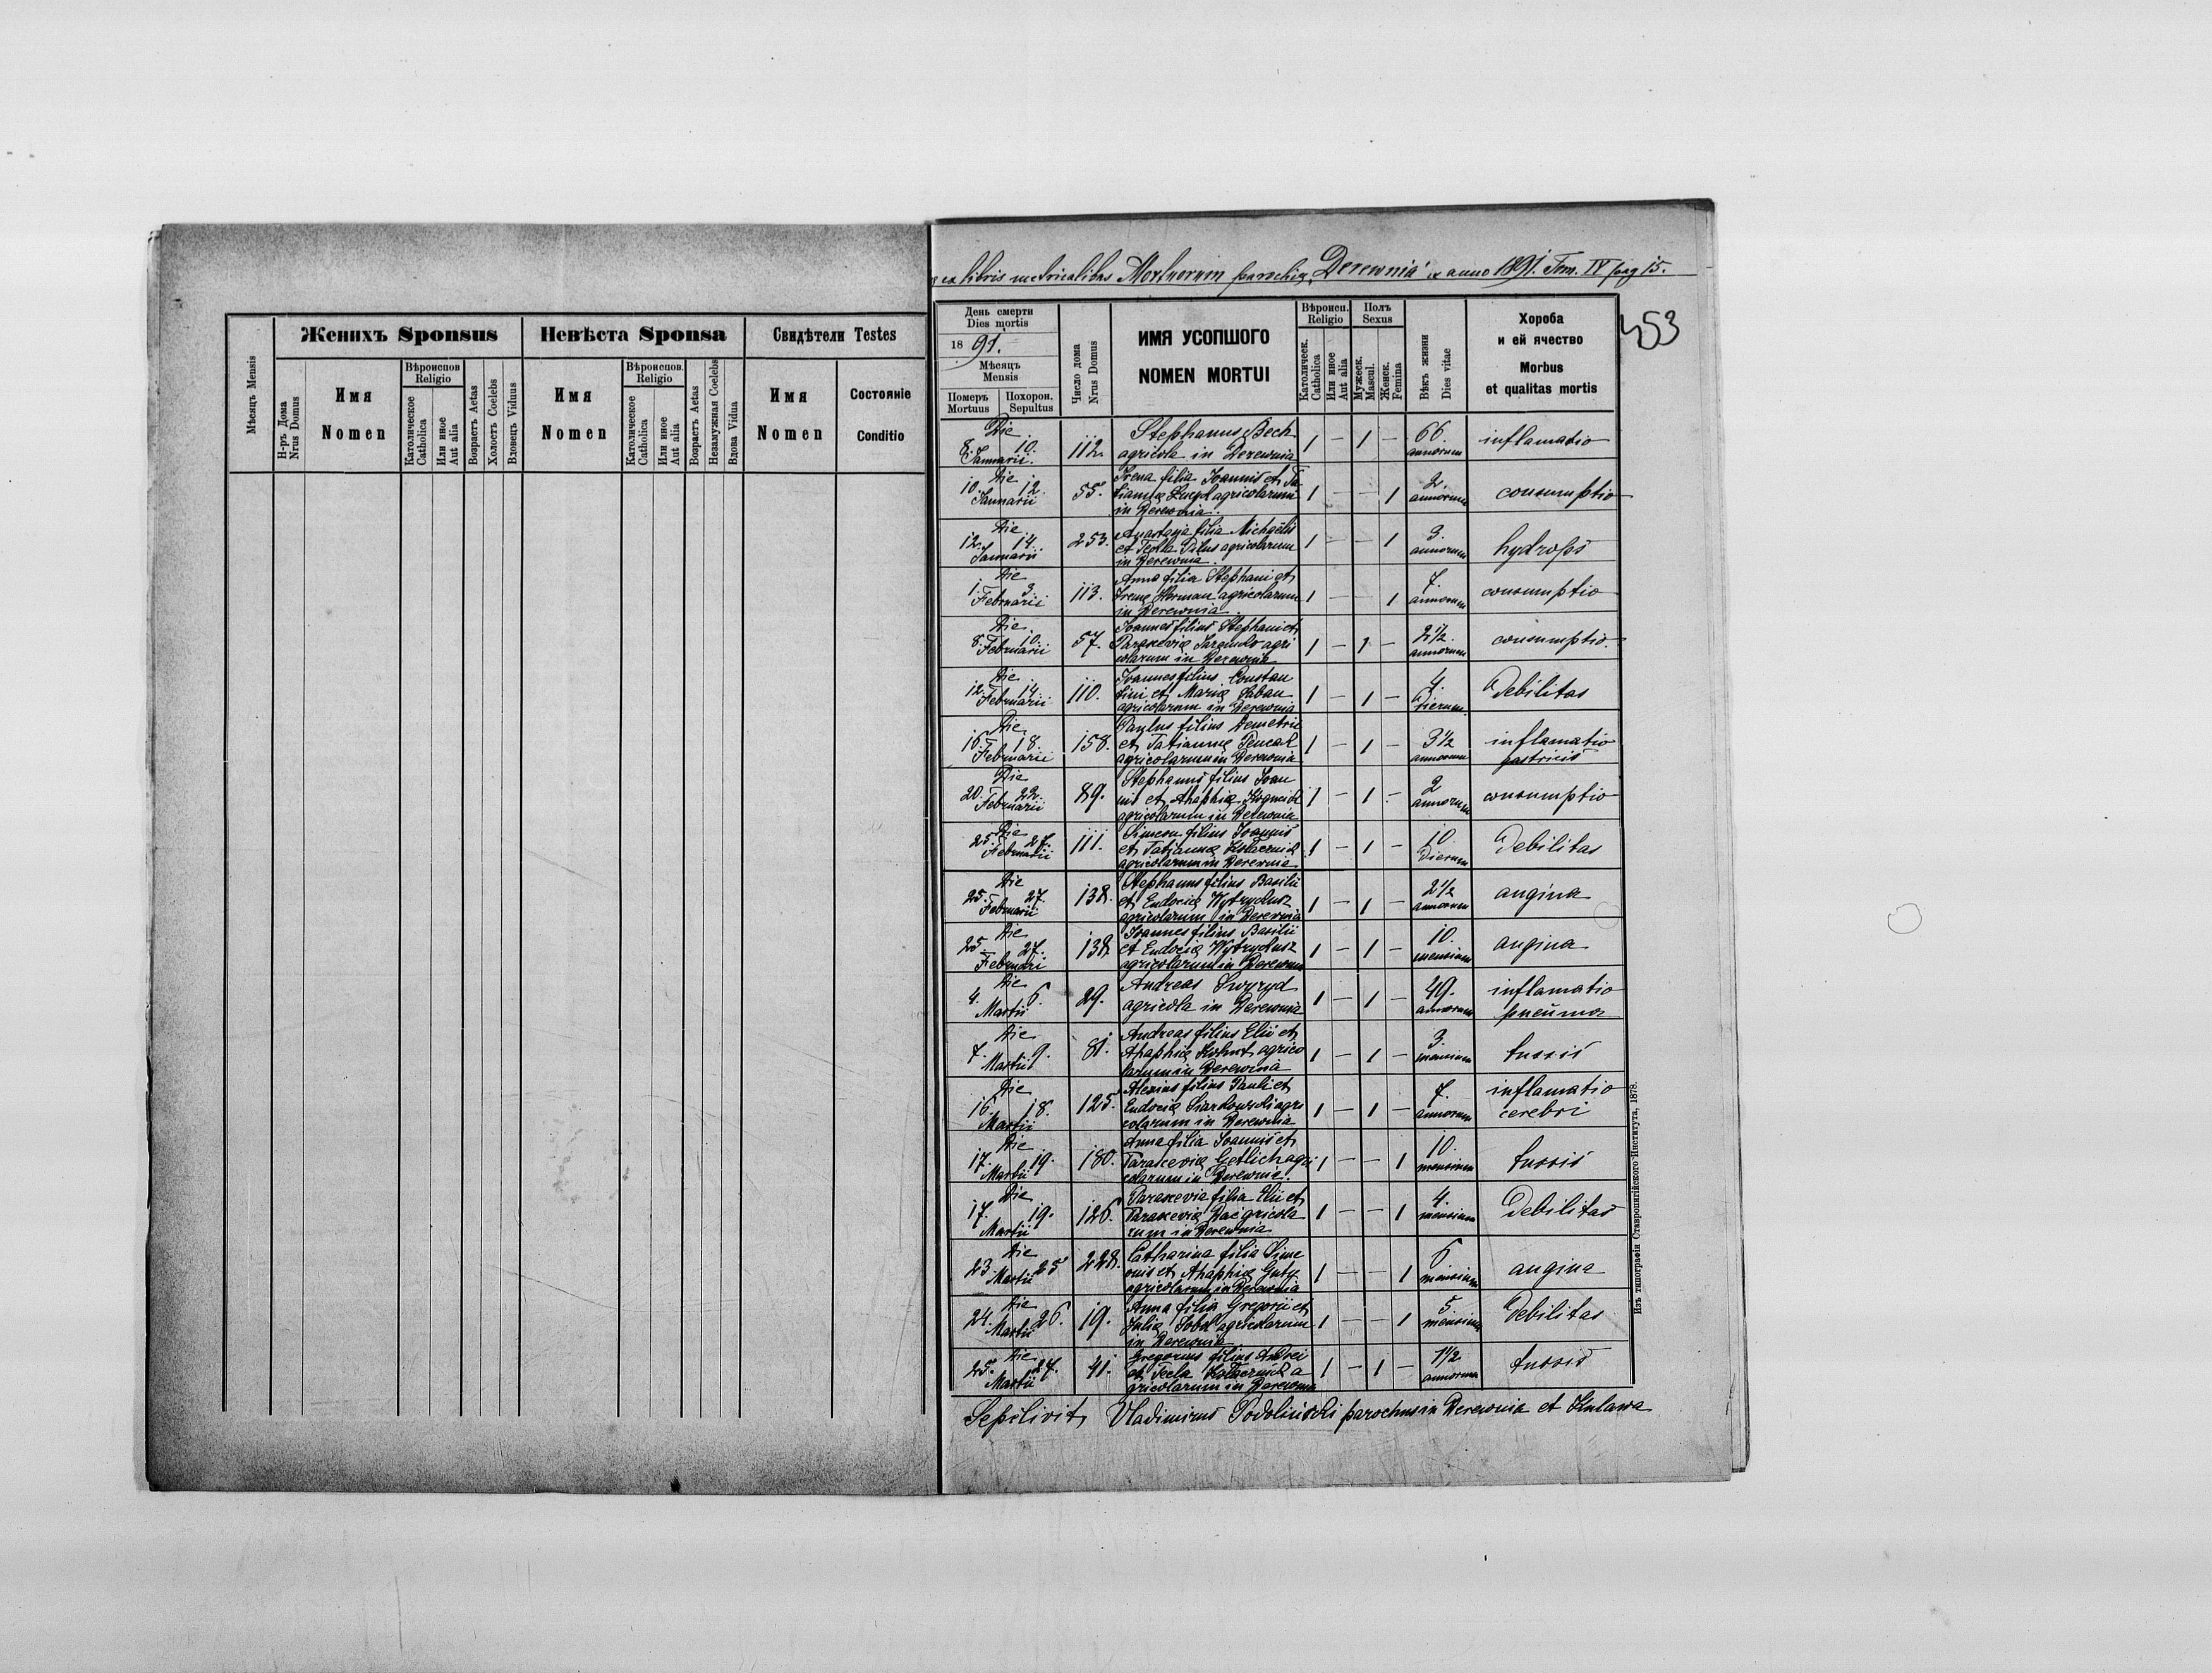 Мѣсяцъ Mensis
Женихъ Sponsus
Невѣста Sponsa
Свидѣтели Testes
Н-ръ Дома
Nrus Domus
Имя
Nomen
Вѣроиспов
Religio
Католическое
Catholica
Или иное
Aut alia
Возрастъ Aetas
Холостъ Coelebs
Вдовецъ Viduus
Имя
Nomen
Вѣроиспов.
Religio
Католическое
Catholica
Или иное
Aut alia
Возрастъ Aetas
Незамужная Coelebs
Вдова Vidua
Имя
Nomen
Состояніе
Conditio
ex libris metricalibus Mortuorum parochiæ "Derewnia" ex anno 1891. Tom. IV pag 15.
353
День смерти
Dies mortis
1891.
Мѣсяцъ
Mensis
Померъ
Mortuus
Похорон.
Sepultus
Число дома
Nrus Domus
ИМЯ УСОПШОГО
NOMEN MORTUI
Вѣроисп.
Religio
Католическ.
Catholica
Или иное
Aut alia
Полъ
Sexus
Мужеск.
Mascul.
Женск.
Femina
Вѣкъ жизни
Dies vitae
Хороба
и ей ячество
Morbus
et qualitas mortis
Die
8. 10.
Januarii.
112.
Stephanus Bech
agricola in Derewnia
1 – 1 –
66.
annorum
inflamatio
Die
10. 12.
Januarii
55.
Irena filia Joannis et Ta
tianæ agricolarum
in Derewnia.
1 – – 1
2.
annorum
consumptio
Die
12. 14.
Januarii
253.
Anastasja filia Michaëlis
et Tekla Pilus agricolarum
in Derewnia.
1 – – 1
3.
annorum
hydrops
Die
1. 3.
Februarii
113.
Anna filia Stephani et
Irenæ Herman agricolarum
in Derewnia.
1 – – 1
7.
annorum
consumptio
Die
8. 10.
Februarii
57.
Joannes filius Stephani et
Paraxeviæ agri
colarum in Derewnia
1 – 1 –
2 1/2.
annorum
consumptio.
Die
12. 14.
Februarii
110.
Joannes filius Constan
tini et Mariæ Saban
agricolarum in Derewnia
1 – 1 –
4.
dierum.
Debilitas
Die
16. 18.
Februarii
158.
Paylus filius Demetrii
et Tatiannæ Pencak
agricolarum in Derewnia
1 – 1 –
3 1/2
annorum
inflamatio
gastricis
Die
20. 22.
Februarii
89.
Stephanus filius Joan
nis et Ahaphiæ
agricolarum in Derewnia
1 – 1 –
2
annorum
consumptio
Die
25. 27.
Februarii
111.
Simeon filius Joannis
et Tatjannæ
agricolarum in Derewnia
1 – 1 –
10.
Dierum
Debilitas
Die
25. 27.
Februarii
138.
Stephanus filius Basilii
et Eudociæ Wytrykusz
agricolarum in Derewnia
1 – 1 –
2 1/2
annorum
angina
Die
25. 27.
Februari
138
Joannes filius Basilii
et Eudociæ Wytrykusz
agricolarum in Derewnia
1 – 1 –
10.
mensium
angina
Die
4. 6.
Martii
29.
Andreas Swyryd
agricola in Derewnia
1 – 1 –
49.
annorum
inflamatio
pneuma
Die
7. 9.
Martii
81.
Andreas filius Elii et
Ahaphiæ Kohut agrico
larum in Derewnia
1 – 1 –
3.
mensium
tussis
Die
16. 18.
Martii
125.
Alexius filius Pauli et
Eudociæ agri
colarum in Derewnia
1 – 1 –
7.
annorum
inflamatio
cerebri
Die
17. 19.
Martii
180.
Anna filia Joannis et
Paraxeviæ Getlich agri
colarum in Derewnia.
1 – – 1
10.
mensium
tussis
Die
17. 19.
Martii
126.
Paraxevia filia Elii et
Paraxeviæ
rum in Derewnia
1 – – 1
4.
mensium
Debilitas
Die
23. 25
Martii
228.
Catharina filia Sime
onis et Ahaphiæ Guty
agricolarum in Derewnia
1 – – 1
6
mensium
angina
Die
24. 26.
Martii
19.
Anna filia Gregorii et
Juliæ Sobol agricolarum
in Derewnia
1 – – 1
5.
mensium
Debilitas
Die
25. 27.
Martii
41.
Gregorius filius Andrei
et Tecla a
gricolarum in Derewnia
1 – 1 –
1 1/2
annorum
tussis
Sepelivit Vladimirus Podolinski parochus in Derewnia et Kulawa
Изъ типографіи Ставропигійского Института, 1878.